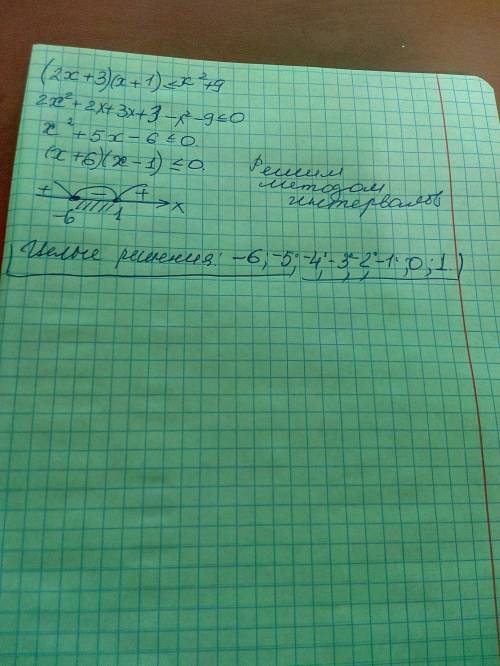 (2x+3)(x+1) ≤ x²+9
2x²+2x+3x+3-x²-9≤0
x²+5x-6≤0.
(x+6)(x-1)≤0.
Решим
методом
интервалов
+ - +
-6 1 x
Целые решения: -6; -5; -4; -3; -2; -1; 0; 1.